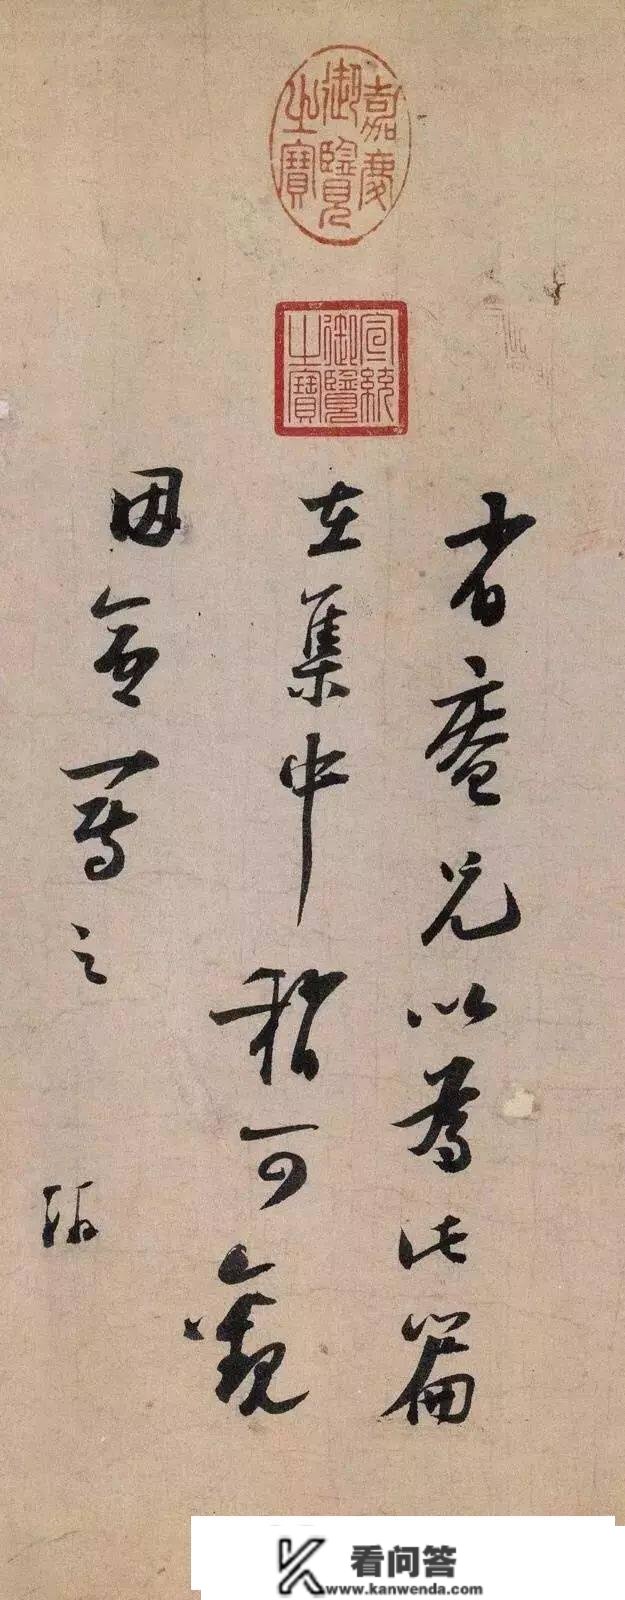 嘉慶
御覽
之寶
宣統
御覽
之寶
省庵兄以爲此篇
在集中稍可觀
因命寫之
看问答
www.kanwenda.com